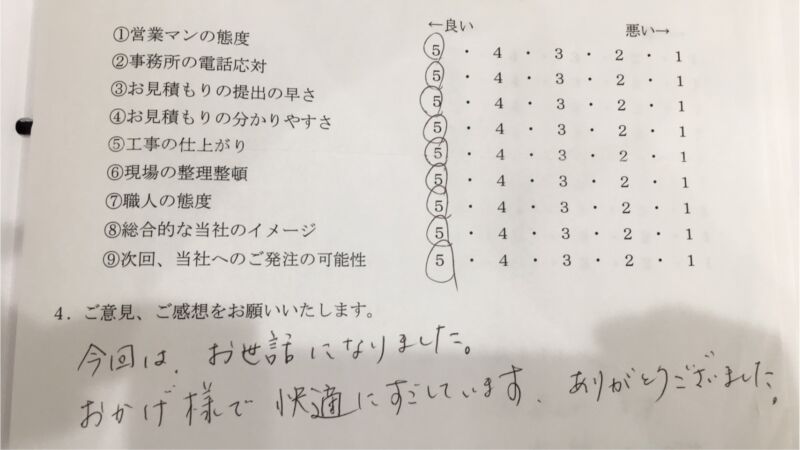 ←良い 悪い→
①営業マンの態度 5 ・ 4 ・ 3 ・ 2 ・ 1
②事務所の電話応対 5 ・ 4 ・ 3 ・ 2 ・ 1
③お見積もりの提出の早さ 5 ・ 4 ・ 3 ・ 2 ・ 1
④お見積もりの分かりやすさ 5 ・ 4 ・ 3 ・ 2 ・ 1
⑤工事の仕上がり 5 ・ 4 ・ 3 ・ 2 ・ 1
⑥現場の整理整頓 5 ・ 4 ・ 3 ・ 2 ・ 1
⑦職人の態度 5 ・ 4 ・ 3 ・ 2 ・ 1
⑧総合的な当社のイメージ 5 ・ 4 ・ 3 ・ 2 ・ 1
⑨次回、当社へのご発注の可能性 5 ・ 4 ・ 3 ・ 2 ・ 1
4．ご意見、ご感想をお願いいたします。
今回は、お世話になりました。
おかげ様で快適にすごしています、ありがとうございました。